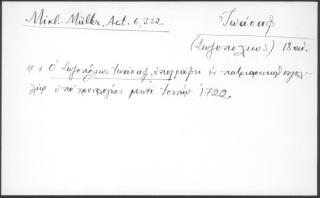 Mikl.-Müller, Act. 6,252. Ἰωάσαφ
(Σωζοπόλεως) 18 αἰ.
«+ Ὁ Σωζοπόλεως Ἰωάσαφ, ὑπογράφει ἐν πατριαρχικῷ
ὑπὸ χρονολογίαν μηνὶ Ἰουνίῳ 1722.